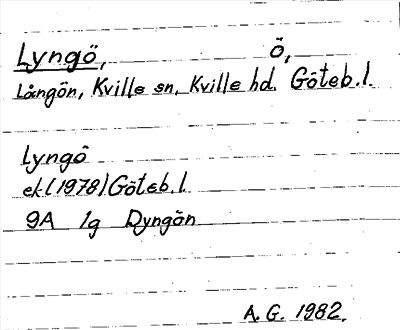 Lyngö, Ö,
Långön, Kville sn, Kville hd. Göteb.l.
Lyngö
ek.(1978) Göteb.l.
9A 1g Dyngön
A.G. 1982.